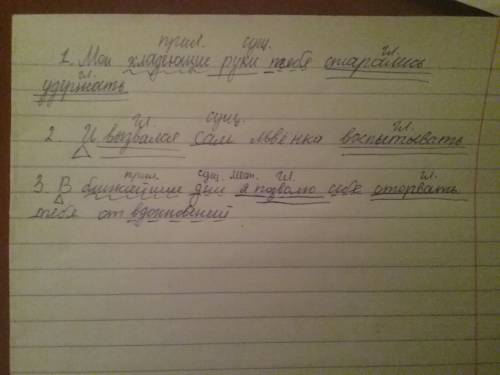 прил. сущ. гл.
1. Мои хладеющие руки тебя старались
гл.
удержать
гл. сущ. гл.
2. И вызвался сам львенка воспитывать
прил. сущ. мест. гл. гл.
3. В ближайшие дни я позволю себе оторвать
тебя от вдохновений